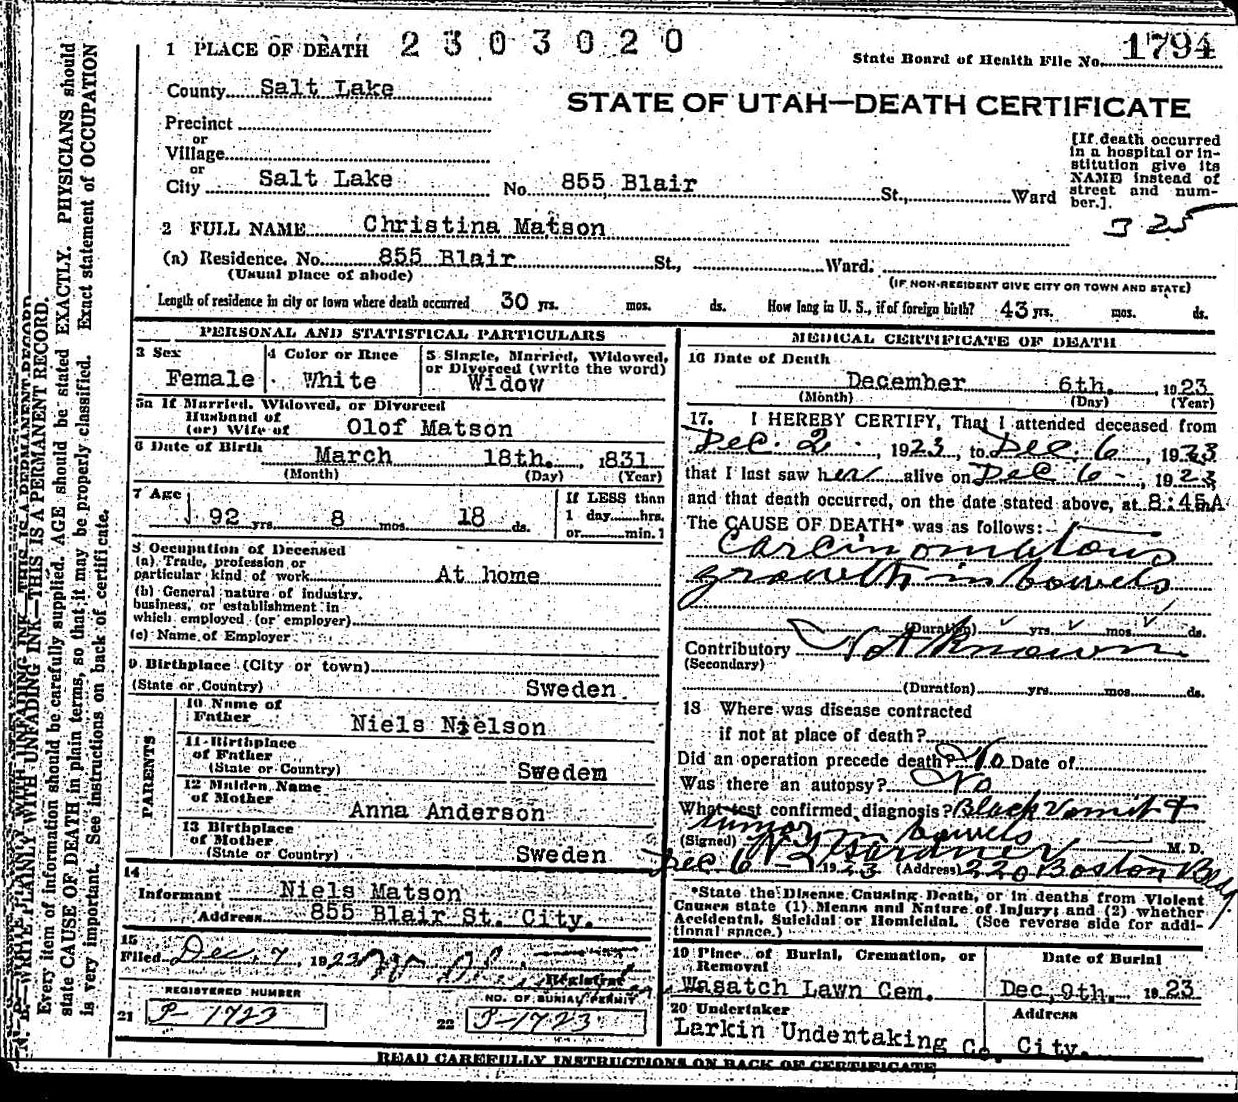 1 PLACE OF DEATH 2303020
State Board of Health File No. 1794
County Salt Lake
STATE OF UTAH—DEATH CERTIFICATE
Precinct
or
Village
or
City Salt Lake No. 855 Blair St., Ward
[If death occurred
in a hospital or in-
stitution give its
NAME instead of
street and num-
ber.].
325
2 FULL NAME Christina Matson
(a) Residence. No. 855 Blair St., Ward.
(Usual place of abode) (IF NON-RESIDENT GIVE CITY OR TOWN AND STATE)
Length of residence in city or town where death occurred 30 yrs. mos. ds. How long in U. S., if of foreign birth? 43 yrs. mos. ds.
PERSONAL AND STATISTICAL PARTICULARS
3 Sex
Female
4 Color or Race
White
5 Single, Married, Widowed,
or Divorced (write the word)
Widow
5a If Married, Widowed, or Divorced
Husband of
(or) Wife of Olof Matson
6 Date of Birth
March 18th. 1831
(Month) (Day) (Year)
7 Age
92 yrs. 8 mos. 18 ds.
If LESS than
1 day hrs.
or min.]
8 Occupation of Deceased
(a) Trade, profession or
particular kind of work At home
(b) General nature of industry,
business, or establishment in
which employed (or employer)
(c) Name of Employer
9 Birthplace (City or town)
(State or Country) Sweden.
PARENTS
10 Name of
Father Niels Nielson
11 Birthplace
of Father
(State or Country) Swedem
12 Maiden Name
of Mother Anna Anderson
13 Birthplace
of Mother
(State or Country) Sweden
14
Informant Niels Matson
Address 855 Blair St. City.
15
Filed Dec, 7, 1923
Registrar
REGISTERED NUMBER
21 P-1723
NO. OF BURIAL PERMIT
22 P-1723
MEDICAL CERTIFICATE OF DEATH
16 Date of Death
December 6th. 1923
(Month) (Day) (Year)
17. I HEREBY CERTIFY, That I attended deceased from
Dec. 2, 1923, to Dec. 6, 1923
that I last saw her alive on Dec 6-, 1923
and that death occurred, on the date stated above, at 8:45A m
The CAUSE OF DEATH* was as follows:
Carcinomatous
growth in bowels
(Duration) yrs. mos. ds.
Contributory Not known
(Secondary)
(Duration) yrs. mos. ds.
18 Where was disease contracted
if not at place of death?
Did an operation precede death? No Date of
Was there an autopsy? No
What test confirmed diagnosis? Black Vomit &
tumor in bowels
(Signed) Gardner M. D.
Dec 6, 1923 (Address) 220 Boston Bldg.
*State the Disease Causing Death, or in deaths from Violent
Causes state (1) Means and Nature of Injury; and (2) whether
Accidental, Suicidal or Homicidal. (See reverse side for addi-
tional space.)
19 Place of Burial, Cremation, or
Removal
Wasatch Lawn Cem.
Date of Burial
Dec, 9th. 1923
20 Undertaker
Larkin Undentaking Co.
Address
City.
READ CAREFULLY INSTRUCTIONS ON BACK OF CERTIFICATE
N. B.—WRITE PLAINLY WITH UNFADING INK—THIS IS A PERMANENT RECORD.
Every item of information should be carefully supplied. AGE should be stated EXACTLY. PHYSICIANS should
state CAUSE OF DEATH in plain terms, so that it may be properly classified. Exact statement of OCCUPATION
is very important. See instructions on back of certificate.